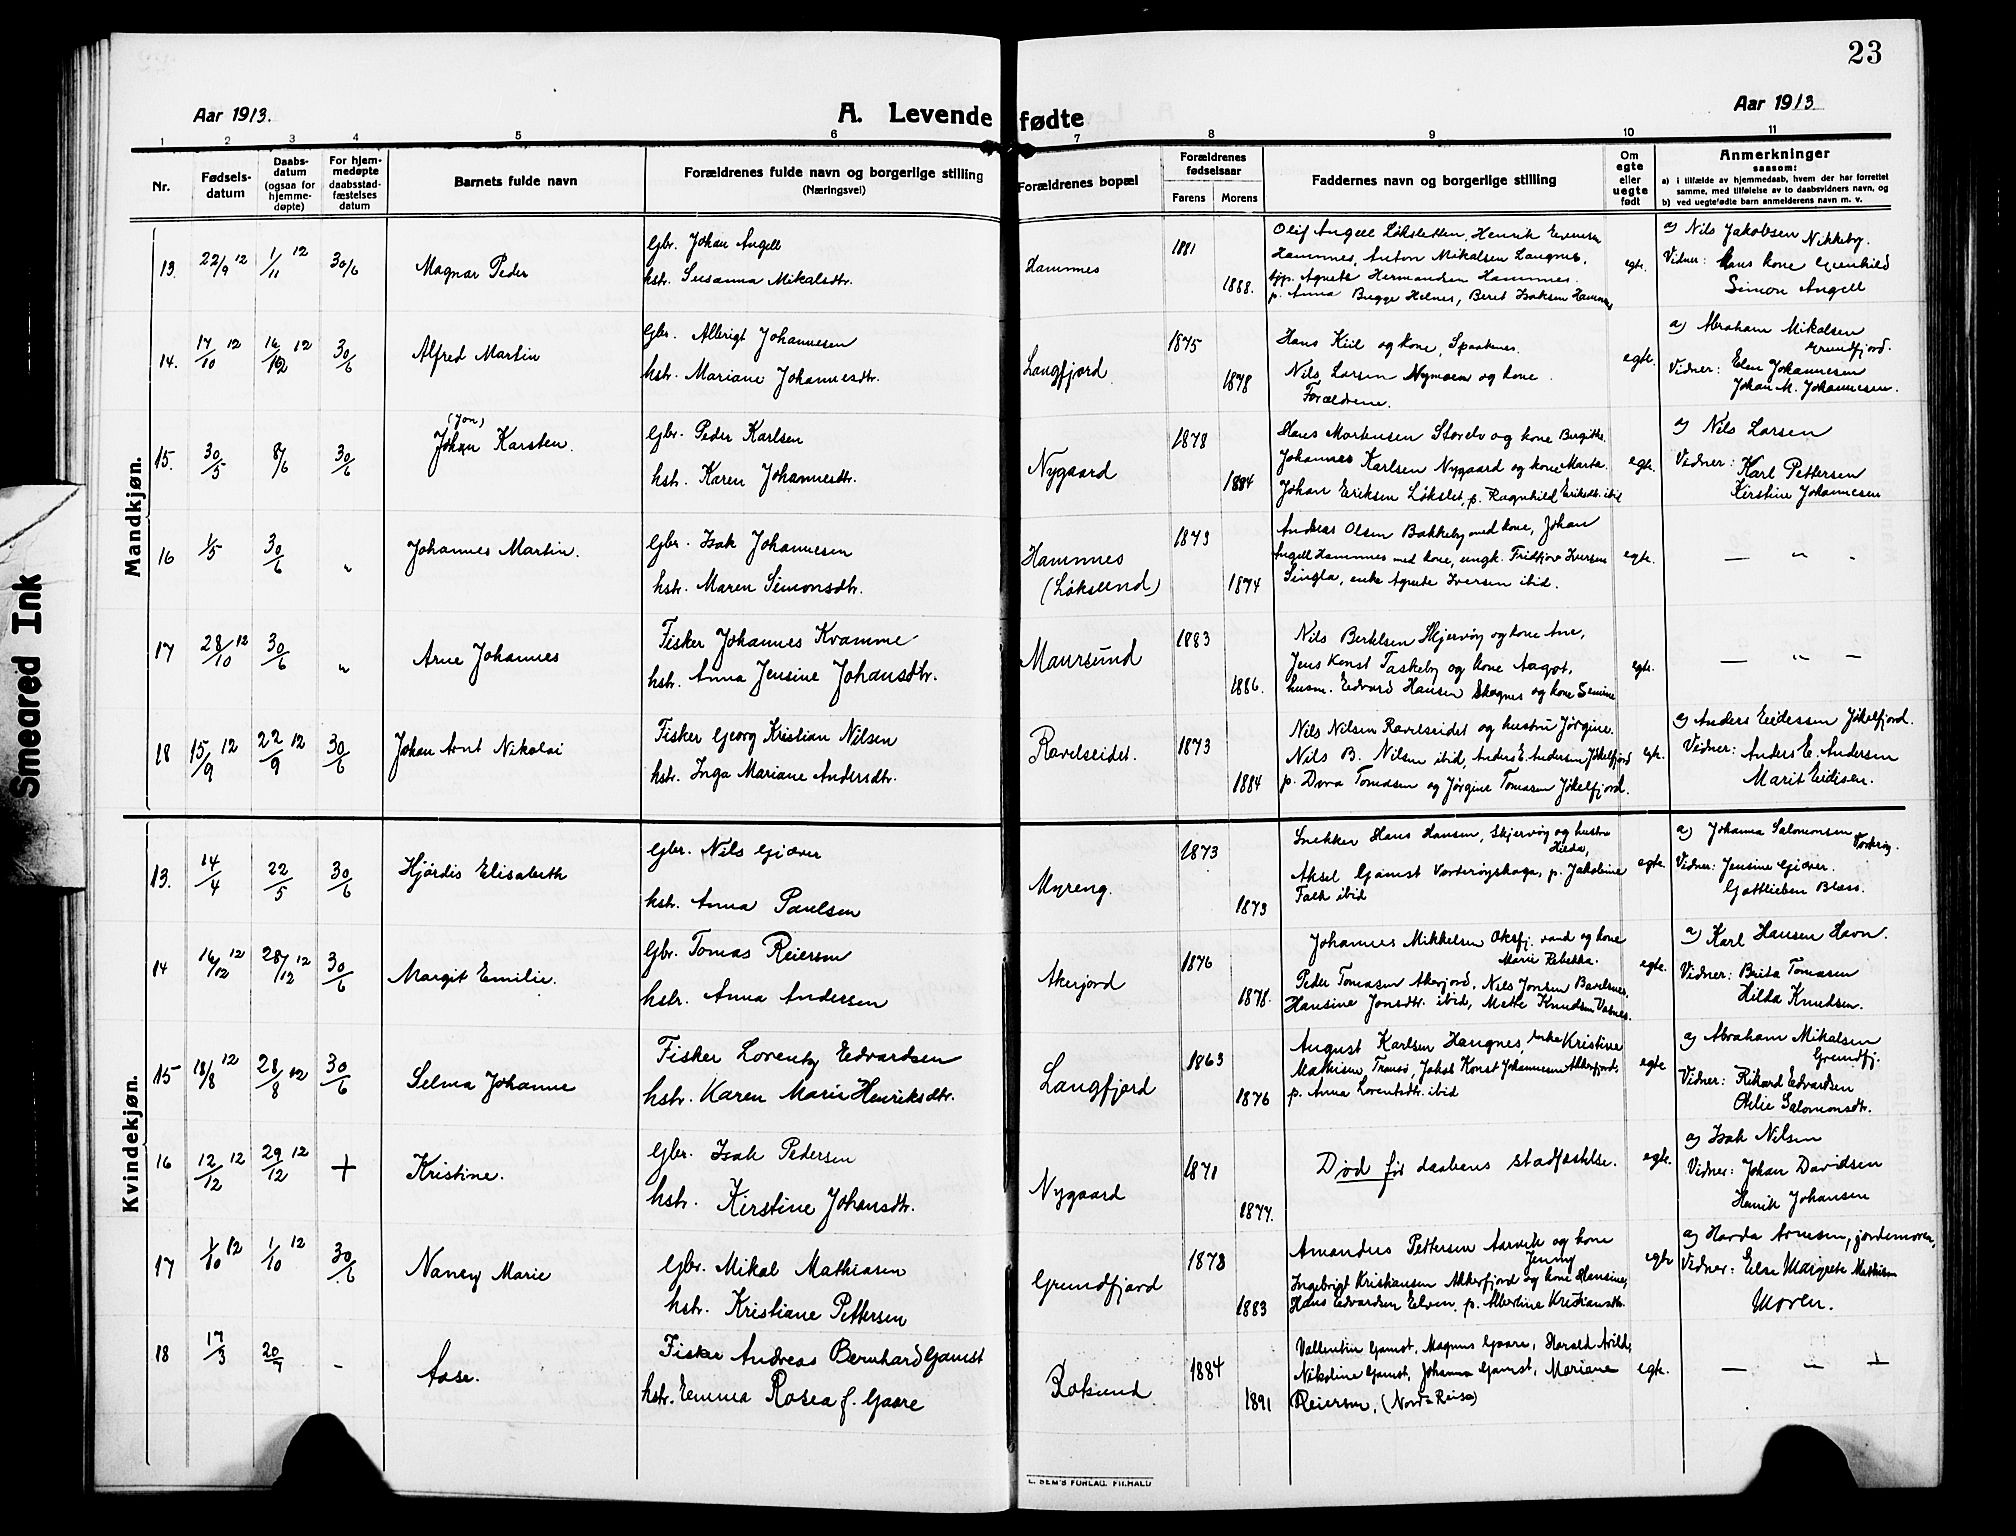 23
Aar 1913.
A. Levende fødte
Aar 1913
1 2 3 4 5 6 7 8 9 10 11
Nr.
Fødsels-
datum
Daabs-
datum
(ogsaa for
hjemme-
døpte)
For hjem-
medøpte
daabsstad-
fæstelses
datum
Barnets fulde navn
Forældrenes fulde navn og borgerlige stilling
(Næringsvei)
Forældrenes bopæl
Forældrenes
fødselsaar
Farens Morens
Faddernes navn og borgerlige stilling
Om
egte
eller
uegte
født
Anmerkninger
saasom:
a) i tilfælde av hjemmedaab, hvem der har forrettet
samme, med tilføielse av to daabsvidners navn, og
b) ved uegtefødte barn anmelderens navn m. v.
Mandkjøn.
13. 22/9 12 1/11 12 30/6 Magnar Peder
Gbr. Johan Angell
hstr. Susanna Mikalsdtr.
Hammes
1881
1888.
Olif Angell Løksletten, Henrik
Hammes, Anton Mikalsen Langnes,
Agnete Hermansen Hammes.
p. Anna Bugge Helnes, Beret Isaksen Hammes
egte.
a) Nils Jakobsen Nikkeby.
Vidner: Hans kone Gunhild
Simon Angell
14. 17/10 12 16/12 12 30/6 Alfred Martin
Gbr. Albrigt Johannesen
hstr. Mariane Johannesdtr.
Langfjord
1875
1878
Hans Kiil og kone, Spaaknes.
Nils Larsen Nymoen og kone.
Forældrene.
egte.
a) Abraham Mikalsen
Grundfjord.
Vidner: Elen Johannesen
Johan M. Johannesen.
15. 30/5 8/6 30/6 (Jon)
Johan Karsten.
Gbr. Peder Karlsen
hstr. Karen Johannesdtr.
Nygaard
1878
1884
Hans Mortensen Storelv og kone Birgitte.
Johannes Karlsen Nygaard og kone Marta.
Johan Eriksen Løkslet, p. Ragnhild Eriksdtr. ibid
egte.
a) Nils Larsen
Vidner: Karl Pettersen
Kirstine Johannesen
16 1/5 30/6 " Johannes Martin.
Gbr. Isak Johannesen
hstr. Maren Simonsdtr.
Hammes
(Løksund)
1873
1874
Andreas Olsen Bakkeby med kone, Johan
Angell Hammes med kone, ungk. Fridtjov Iversen
Singla, enke Agnete Iversen ibid.
egte.
— " -
17 28/10 12 30/6 " Arne Johannes
Fisker Johannes Kvamme
hstr. Anna Jensine Johansdtr.
Maursund
1883
1886.
Nils Bertelsen Skjervøy og kone Ane,
Jens Konst Taskeby og kone Aagot,
husm. Edvard Hansen Skognes og kone Semine
egte.
— " —
18 15/9 12 22/9 12 30/6 Johan Arnt Nikolai
Fisker Georg Kristian Nilsen
hstr. Inga Mariane Andersdtr.
Ravelseidet.
1873
1884
Nils Nilsen Ravelseidet og hustru Jørgine.
Nils B. Nilsen ibid, Anders E. Andersen Jøkelfjord
p. Dora Tomasen og Jørgine Tomasen Jøkelfjord.
egte.
a) Anders Eidissen Jøkelfjord.
Vidner: Anders E. Andersen
Marit Eidisen.
Kvindekjøn.
13. 14/4 22/5 30/6 Hjørdis Elisabeth
Gbr. Nils Giæver
hstr. Anna Paulsen
Myreng.
1873
1873
Snekker Hans Hansen, Skjervøy og hustru
Hilda,
Aksel Gamst Vorterøyskaga, p. Jakobine
Falk ibid
egte.
a) Johanna Salomonsen
Vorterøy.
Vidner: Jensine Giæver.
Gottlieben Blæss.
14 16/12 12 28/12 12 30/6 Margit Emilie.
Gbr. Tomas Reiersen
hstr. Anna Andersen
Akerjord
1876
1878.
Johannes Mikkelsen Oksfj. vand og kone
Marie Rebekka.
Peder Tomasen Akerjord, Nils Jonsen
Hansine Jonsdtr. ibid, Mette Knudsen
egte.
a) Karl Hansen Havn.
Vidner: Brita Tomasen
Hilda Knudsen.
15 18/8 12 28/8 12 30/6 Selma Johanne
Fisker Lorentz Edvardsen
hstr. Karen Marie Henriksdtr.
Langfjord
1863
1876
August Karlsen Haugnes, enke Kristine
Mathisen, Tromsø, Jakob Konst Johannesen Akkerfjord.
p. Anna Lorentsdtr. ibid
egte
a) Abraham Mikalsen
Grundfj.
Vidner: Rikard Edvardsen
Ovelie Salomonsdtr.
16 12/12 12 29/12 12 + Kristine.
Gbr. Isak Pedersen
hstr. Kirstine Johansdtr.
Nygaard
1871
1877.
Død før daabens stadfæstelse.
egte.
a) Isak Nilsen
Vidner: Johan Davidsen
Henrik Johansen
17 1/10 12 1/10 12 30/6 Nancy Marie
Gbr. Mikal Mathiasen
hstr. Kristiane Pettersen
Grundfjord
1878
1883
Amandus Pettersen Aarvik og kone
Jenny
Ingebrigt Kristiansen Akkerfjord og kone Hansine,
Hans Edvardsen Elven, p. Albertine Kristiansdtr.
egte
a) Harda Arnesen, jordemoren,
Vidner: Else Margrete Mathisen
Moren.
18 17/3 20/7 - Aase.
Fisker Andreas Bernhard Gamst
hstr. Emma Rosea f. Gaare
Roksund.
1884
1891
Vallentin Gamst, Magnus Gaare, Harald Arild,
Nikoline Gamst, Johanna Gamst, Mariane
Reiersen, (Nord-Reisa)
egte.
— " —
Smeared Ink
E. SEM'S FORLAG, FR.HALD